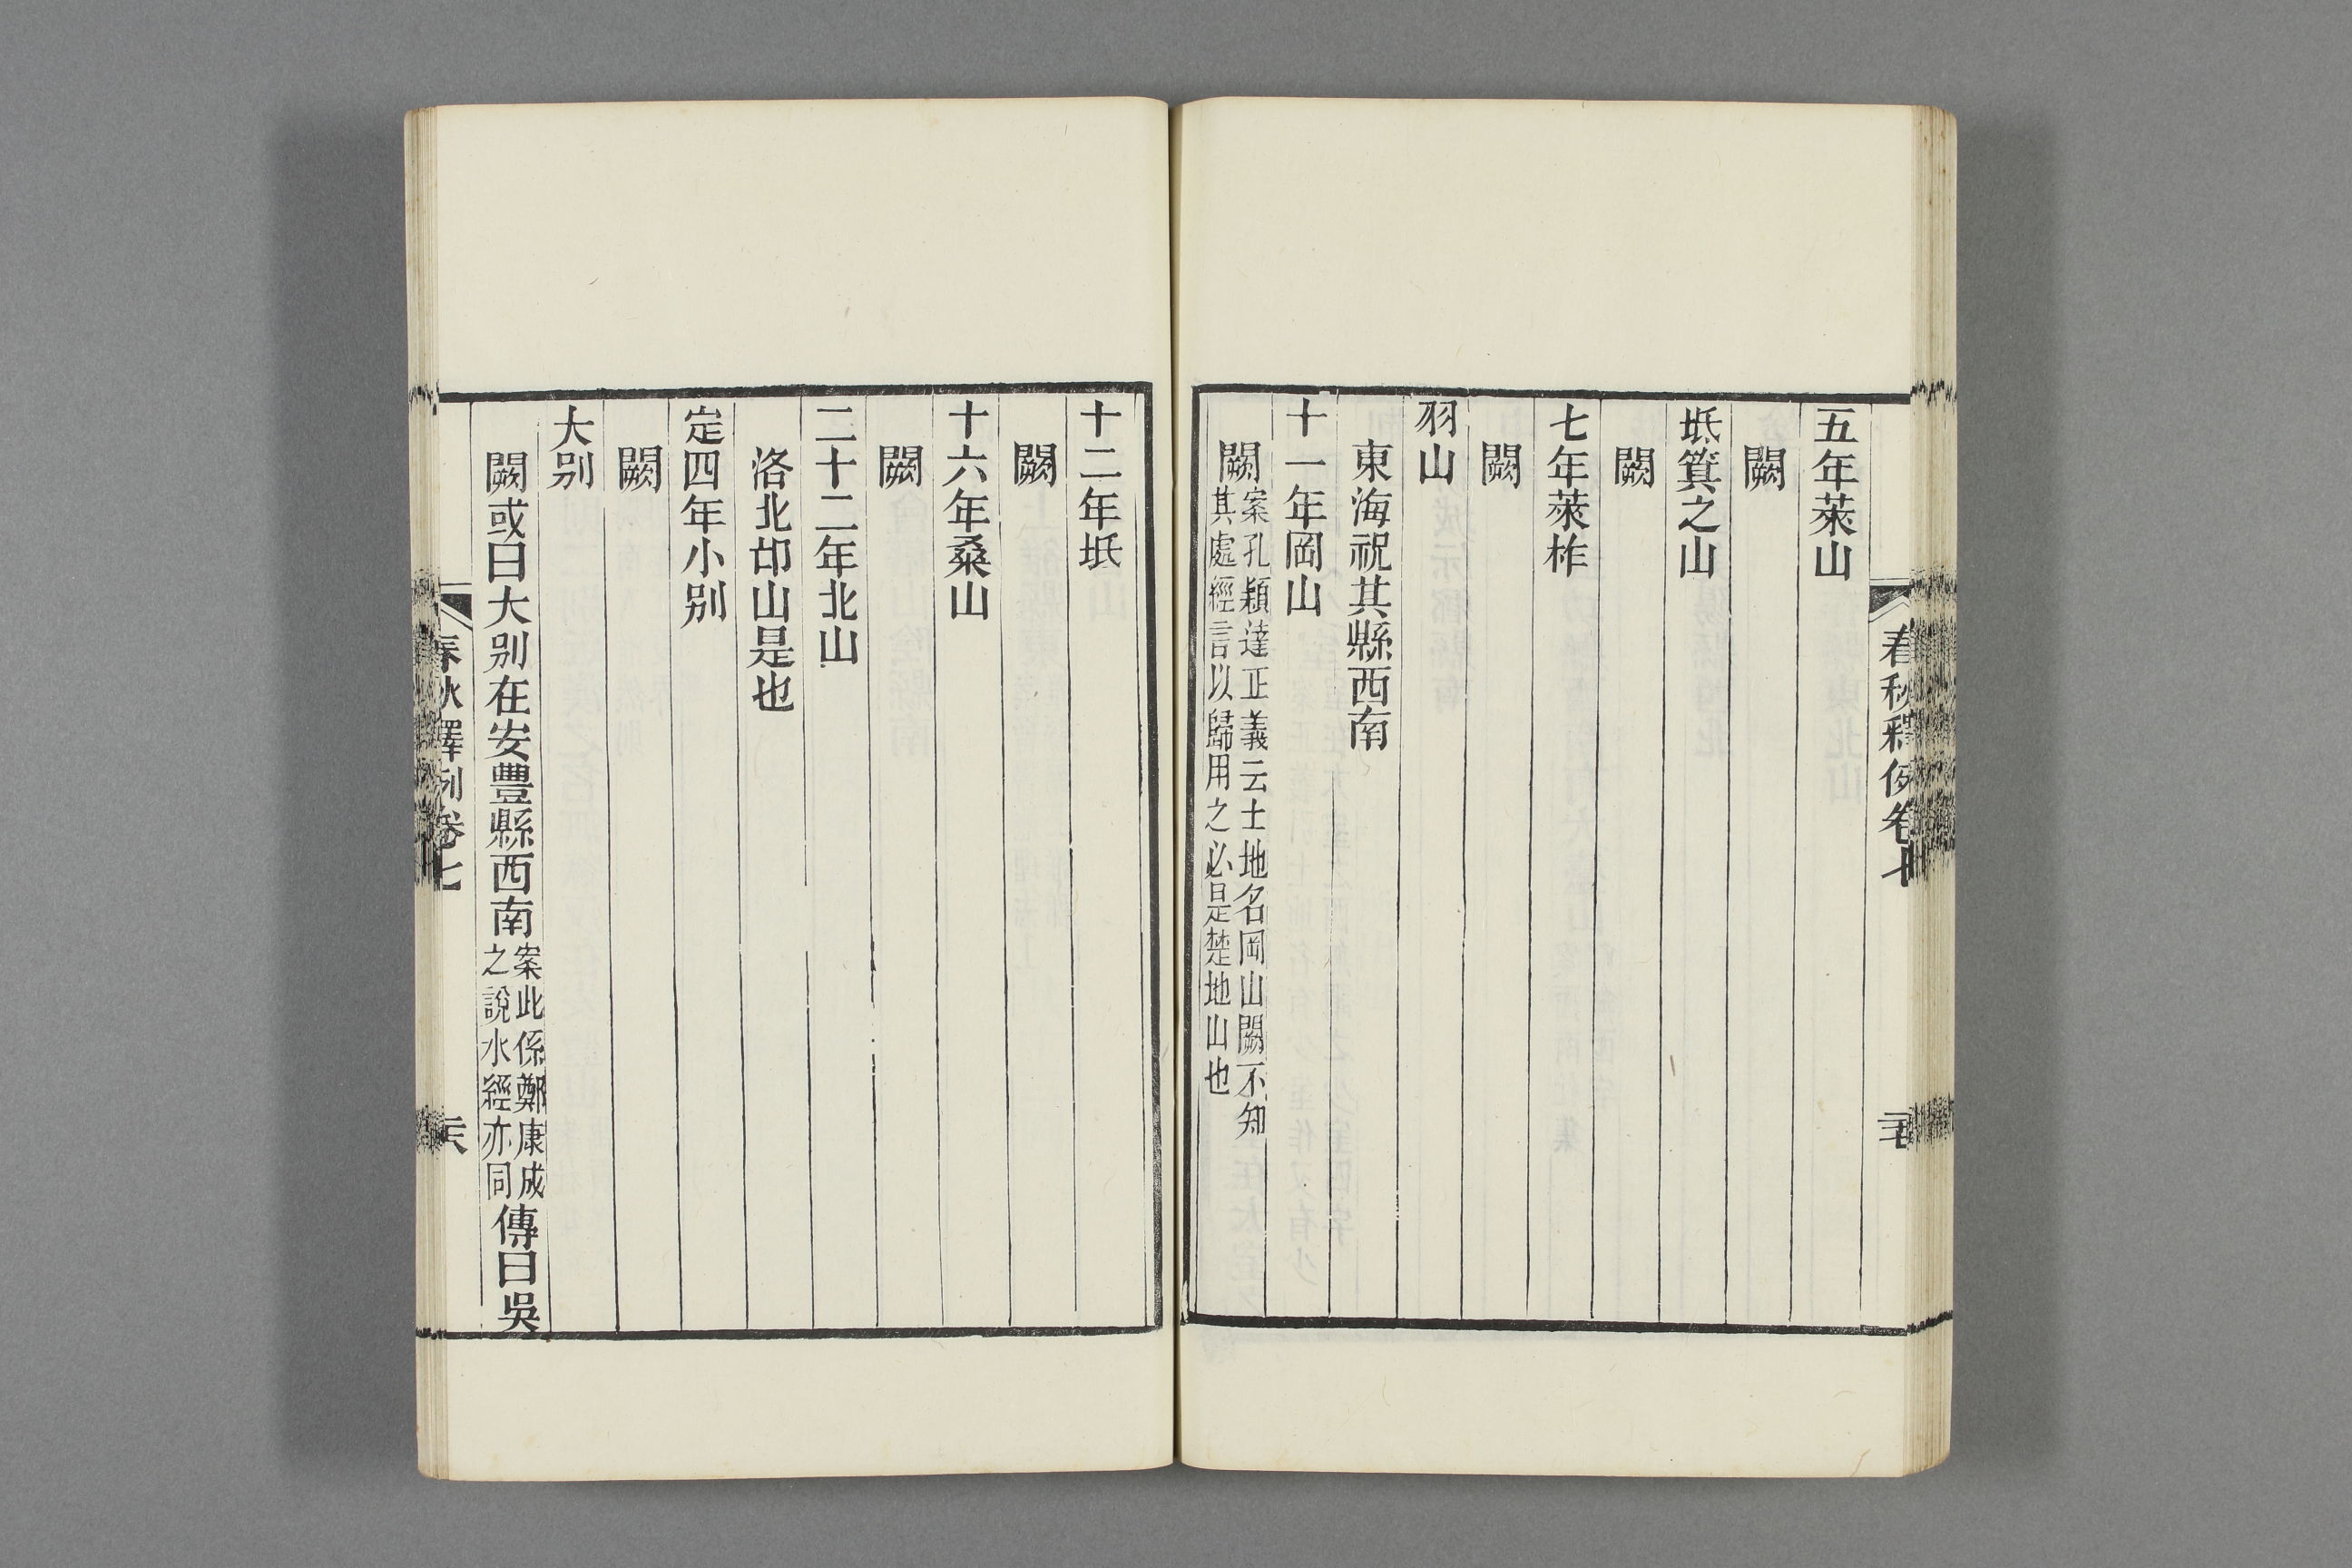 春秋釋例卷七
五年萊山
闕
坻箕之山
闕
七年萊柞
闕
羽山
東海祝其縣西南
十一年岡山
闕案孔穎達正義云土地名岡山闕不知
其處經言以歸用之必是楚地山也
十二年坻
闕
十六年桑山
闕
二十二年北山
洛北邙山是也
定四年小别
闕
大别
闕或曰大别在安豐縣西南案此係鄭康成之說水經亦同傳曰吳
春秋釋例卷七